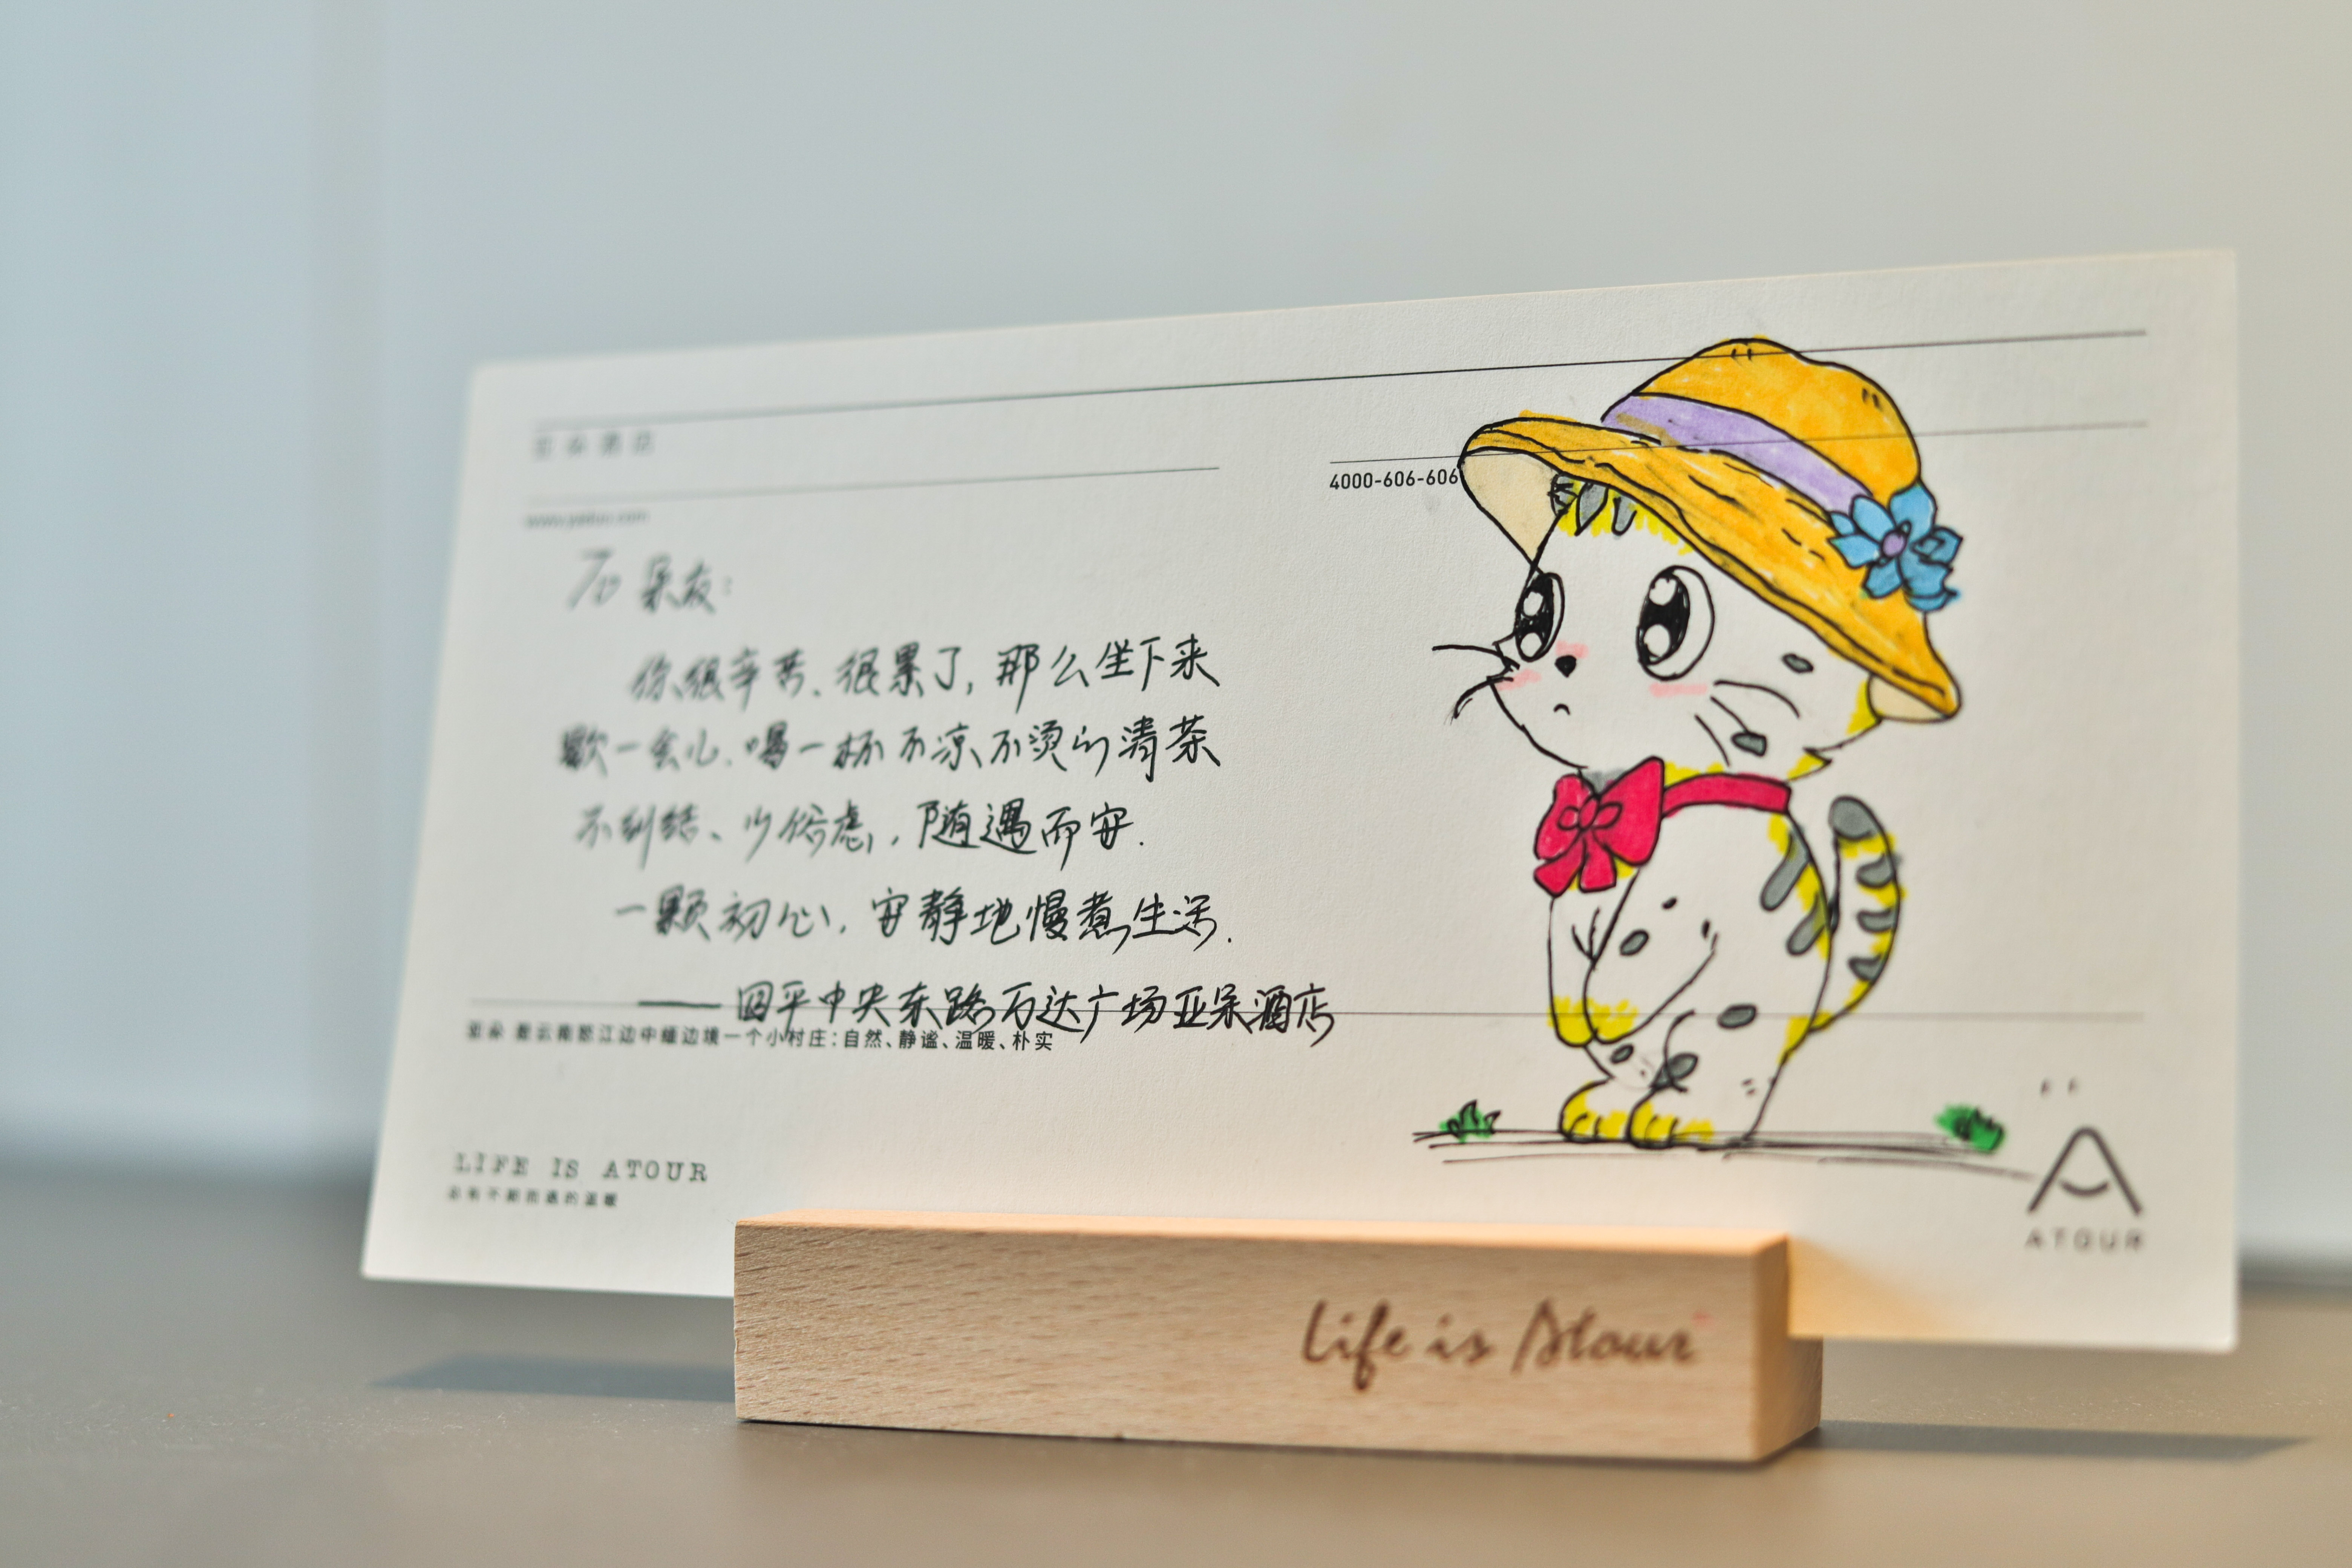 亚朵酒店
www.yaduo.com
4000-606-606
To 朵友：
你很辛苦、很累了，那么坐下来
歇一会儿、喝一杯不凉不烫的清茶
不纠结、少俗虑，随遇而安.
一颗初心，安静地慢煮生活.
——四平中央东路万达广场亚朵酒店
亚朵 是云南怒江边中缅边境一个小村庄：自然、静谧、温暖、朴实
LIFE IS ATOUR
总有不期而遇的温暖
ATOUR
Life is Atour